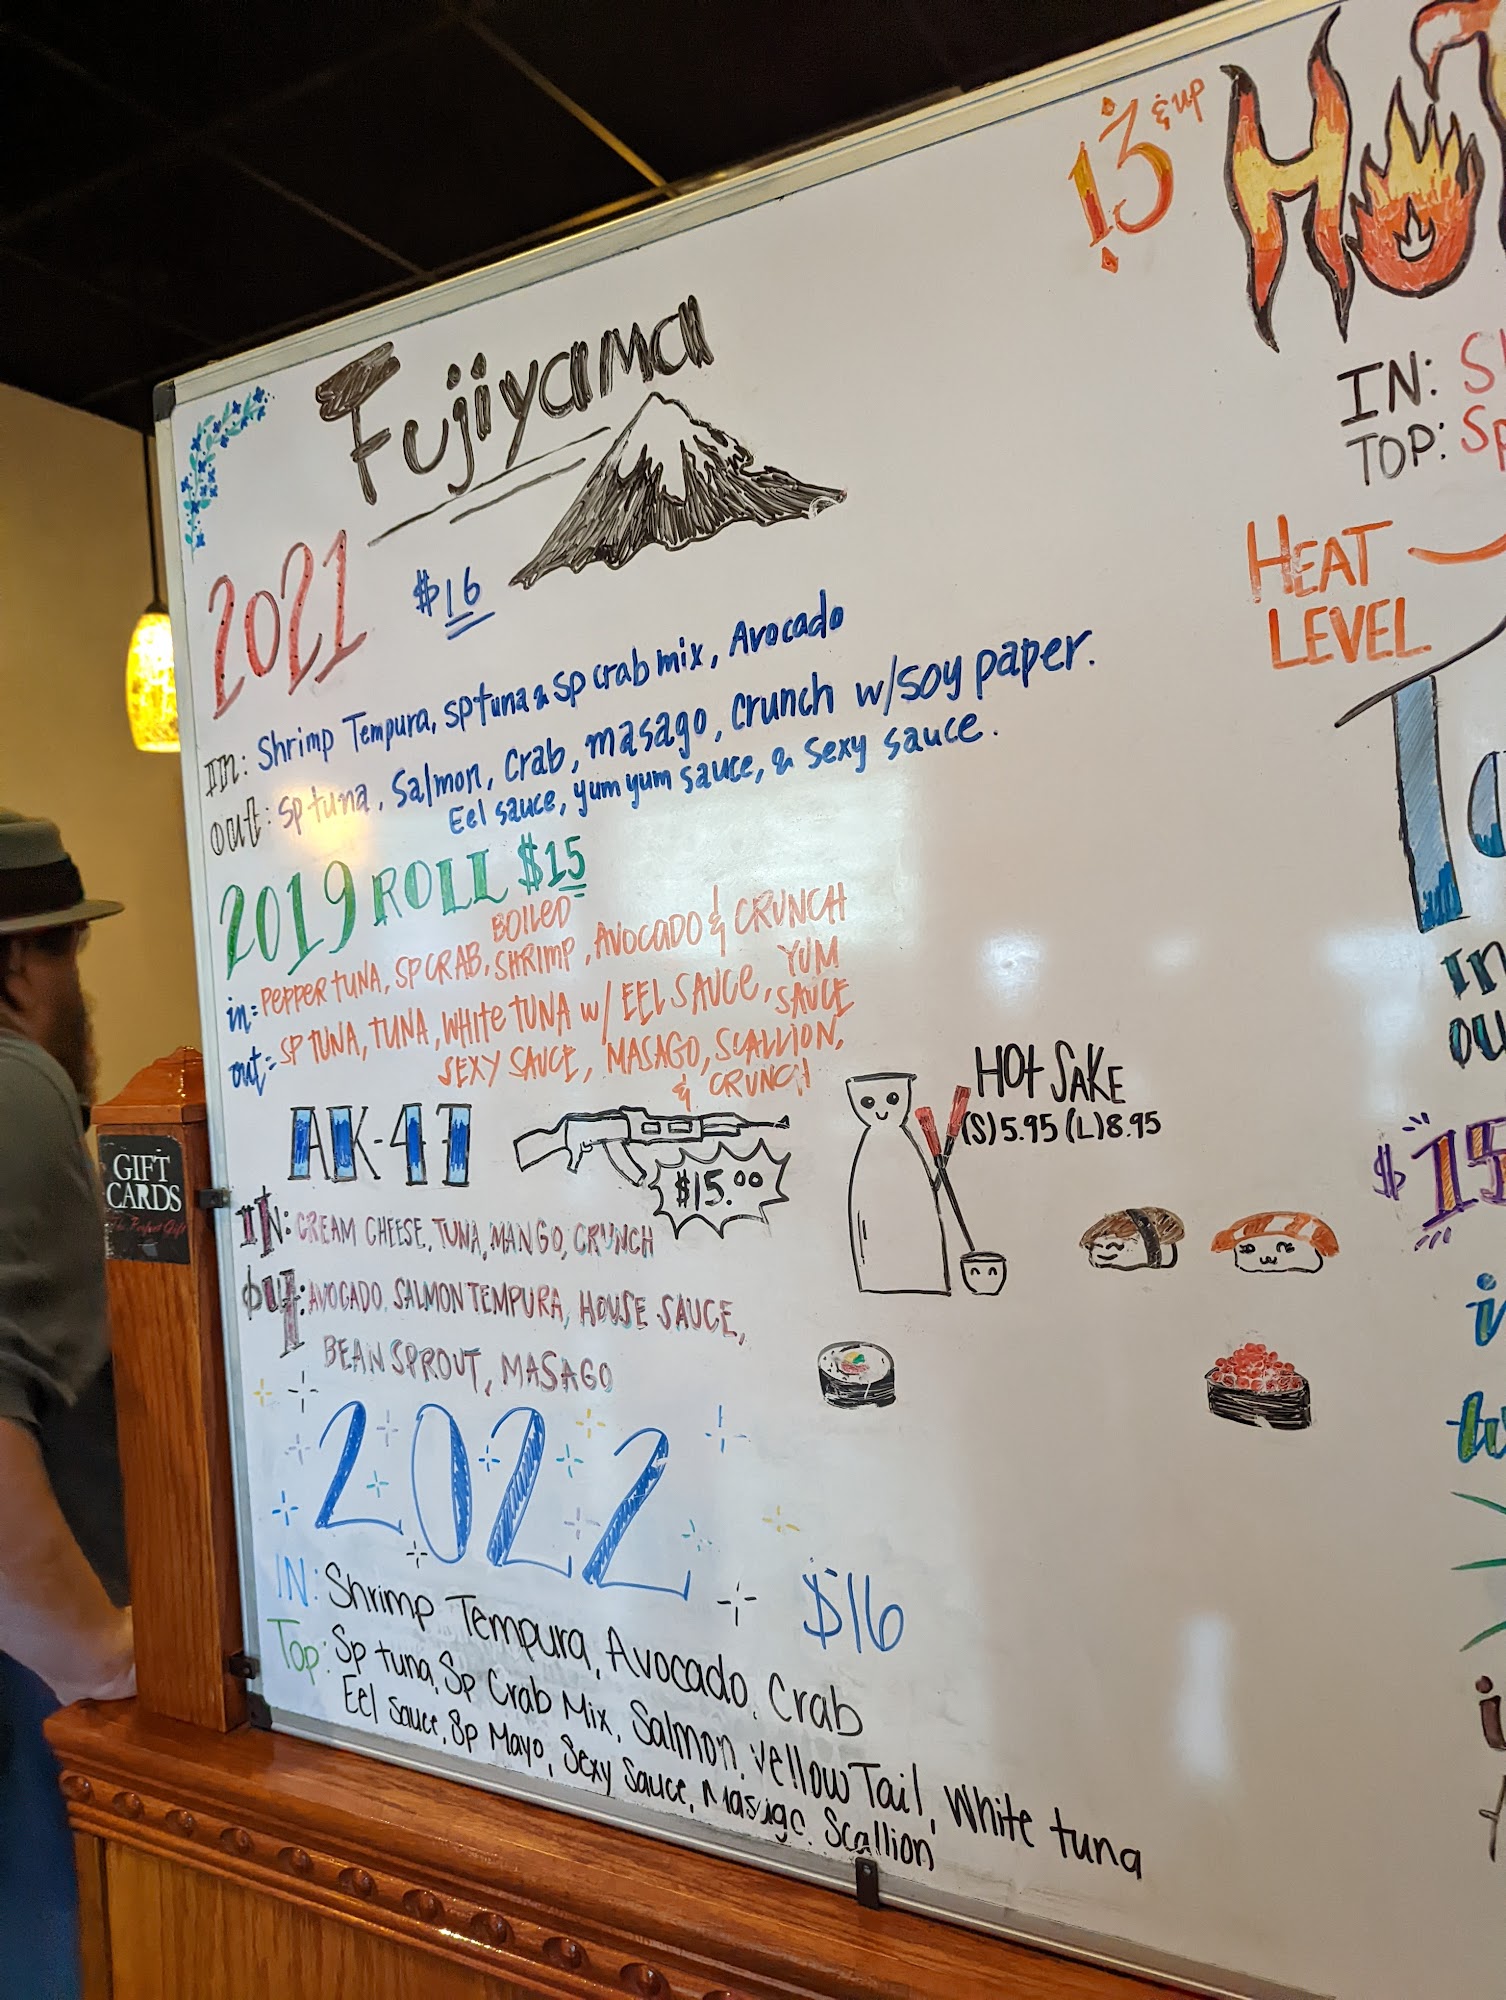 Fujiyama
2021
$16
In: Shrimp Tempura, sp tuna & sp crab mix, Avocado
out: sp tuna, Salmon, Crab, masago, crunch w/soy paper.
Eel sauce, yum yum sauce, & sexy sauce.
2019 ROLL $15
in: PEPPER TUNA, SP CRAB, BOILED SHRIMP, AVOCADO & CRUNCH
out: SP TUNA, TUNA, WHITE TUNA w/ EEL SAUCE, YUM SAUCE
SEXY SAUCE, MASAGO, SCALLION,
& CRUNCH
AK-47
$15.00
IN: CREAM CHEESE, TUNA, MANGO, CRUNCH
OUT: AVOCADO, SALMON TEMPURA, HOUSE SAUCE,
BEAN SPROUT, MASAGO
2022
$16
IN: Shrimp Tempura, Avocado, Crab
Top: Sp tuna, Sp Crab Mix, Salmon, Yellow Tail, White tuna
Eel sauce, Sp Mayo, Sexy Sauce, Masago, Scallion
HOT SAKE
(S) 5.95 (L) 8.95
13 & up
HOT
IN:
TOP:
HEAT
LEVEL
$15
GIFT
CARDS
The Perfect Gift